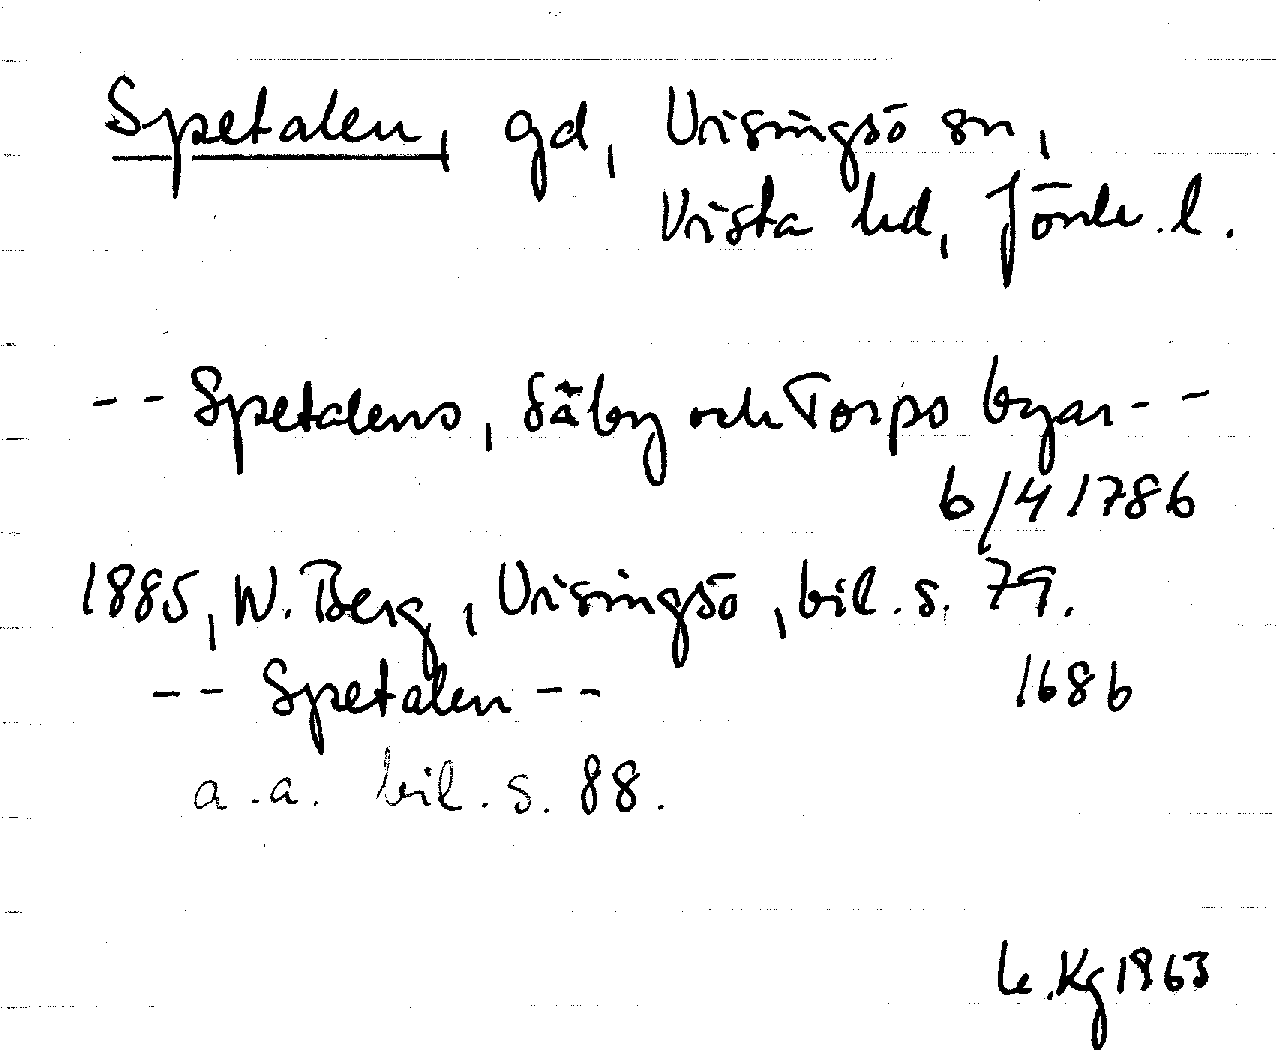 Spetalen, gd, Visingsö sn,
Vista hd, Jönk. l.
-- Spetalens, Säby och Torpo byar --
6/4 1786
1885, W. Berg, Visingsö, bil. s. 79.
-- Spetalen --
1686
a.a. bil. s. 88.
Kg 1963